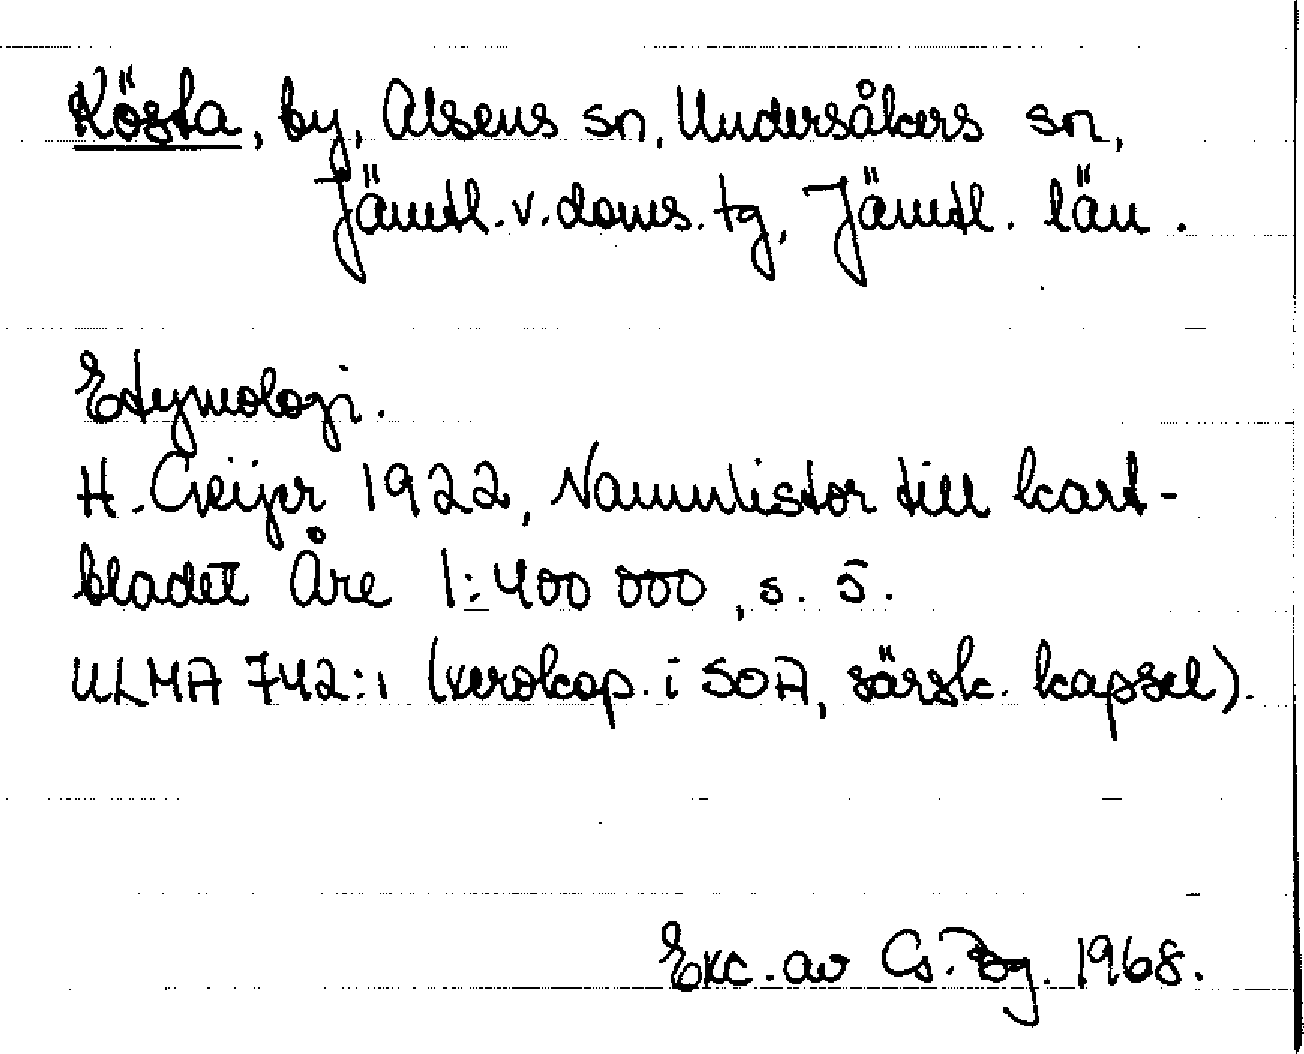 Kösta, by, Alsens sn, Undersåkers sn,
Jämtl. v. doms. tg, Jämtl. län.
Etymologi.
H. Geijer 1922, Namnlistor till kart-
bladet Åre 1:400 000, s. 5.
ULMA 742:1 (xerokop. i SOA, särsk. kapsel).
Exc. av Gs. Bg. 1968.